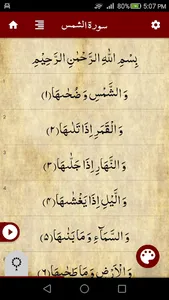 5:07 PM
سورة الشمس
بِسْمِ اللهِ الرَّحْمٰنِ الرَّحِيْمِ
وَالشَّمْسِ وَضُحٰىهَا (۱)
وَالْقَمَرِ اِذَا تَلٰىهَا (۲)
وَالنَّهَارِ اِذَا جَلّٰىهَا (۳)
وَالَّيْلِ اِذَا يَغْشٰىهَا (۴)
وَالسَّمَآءِ وَمَا بَنٰىهَا (۵)
وَالْاَرْضِ وَمَا طَحٰىهَا (۶)